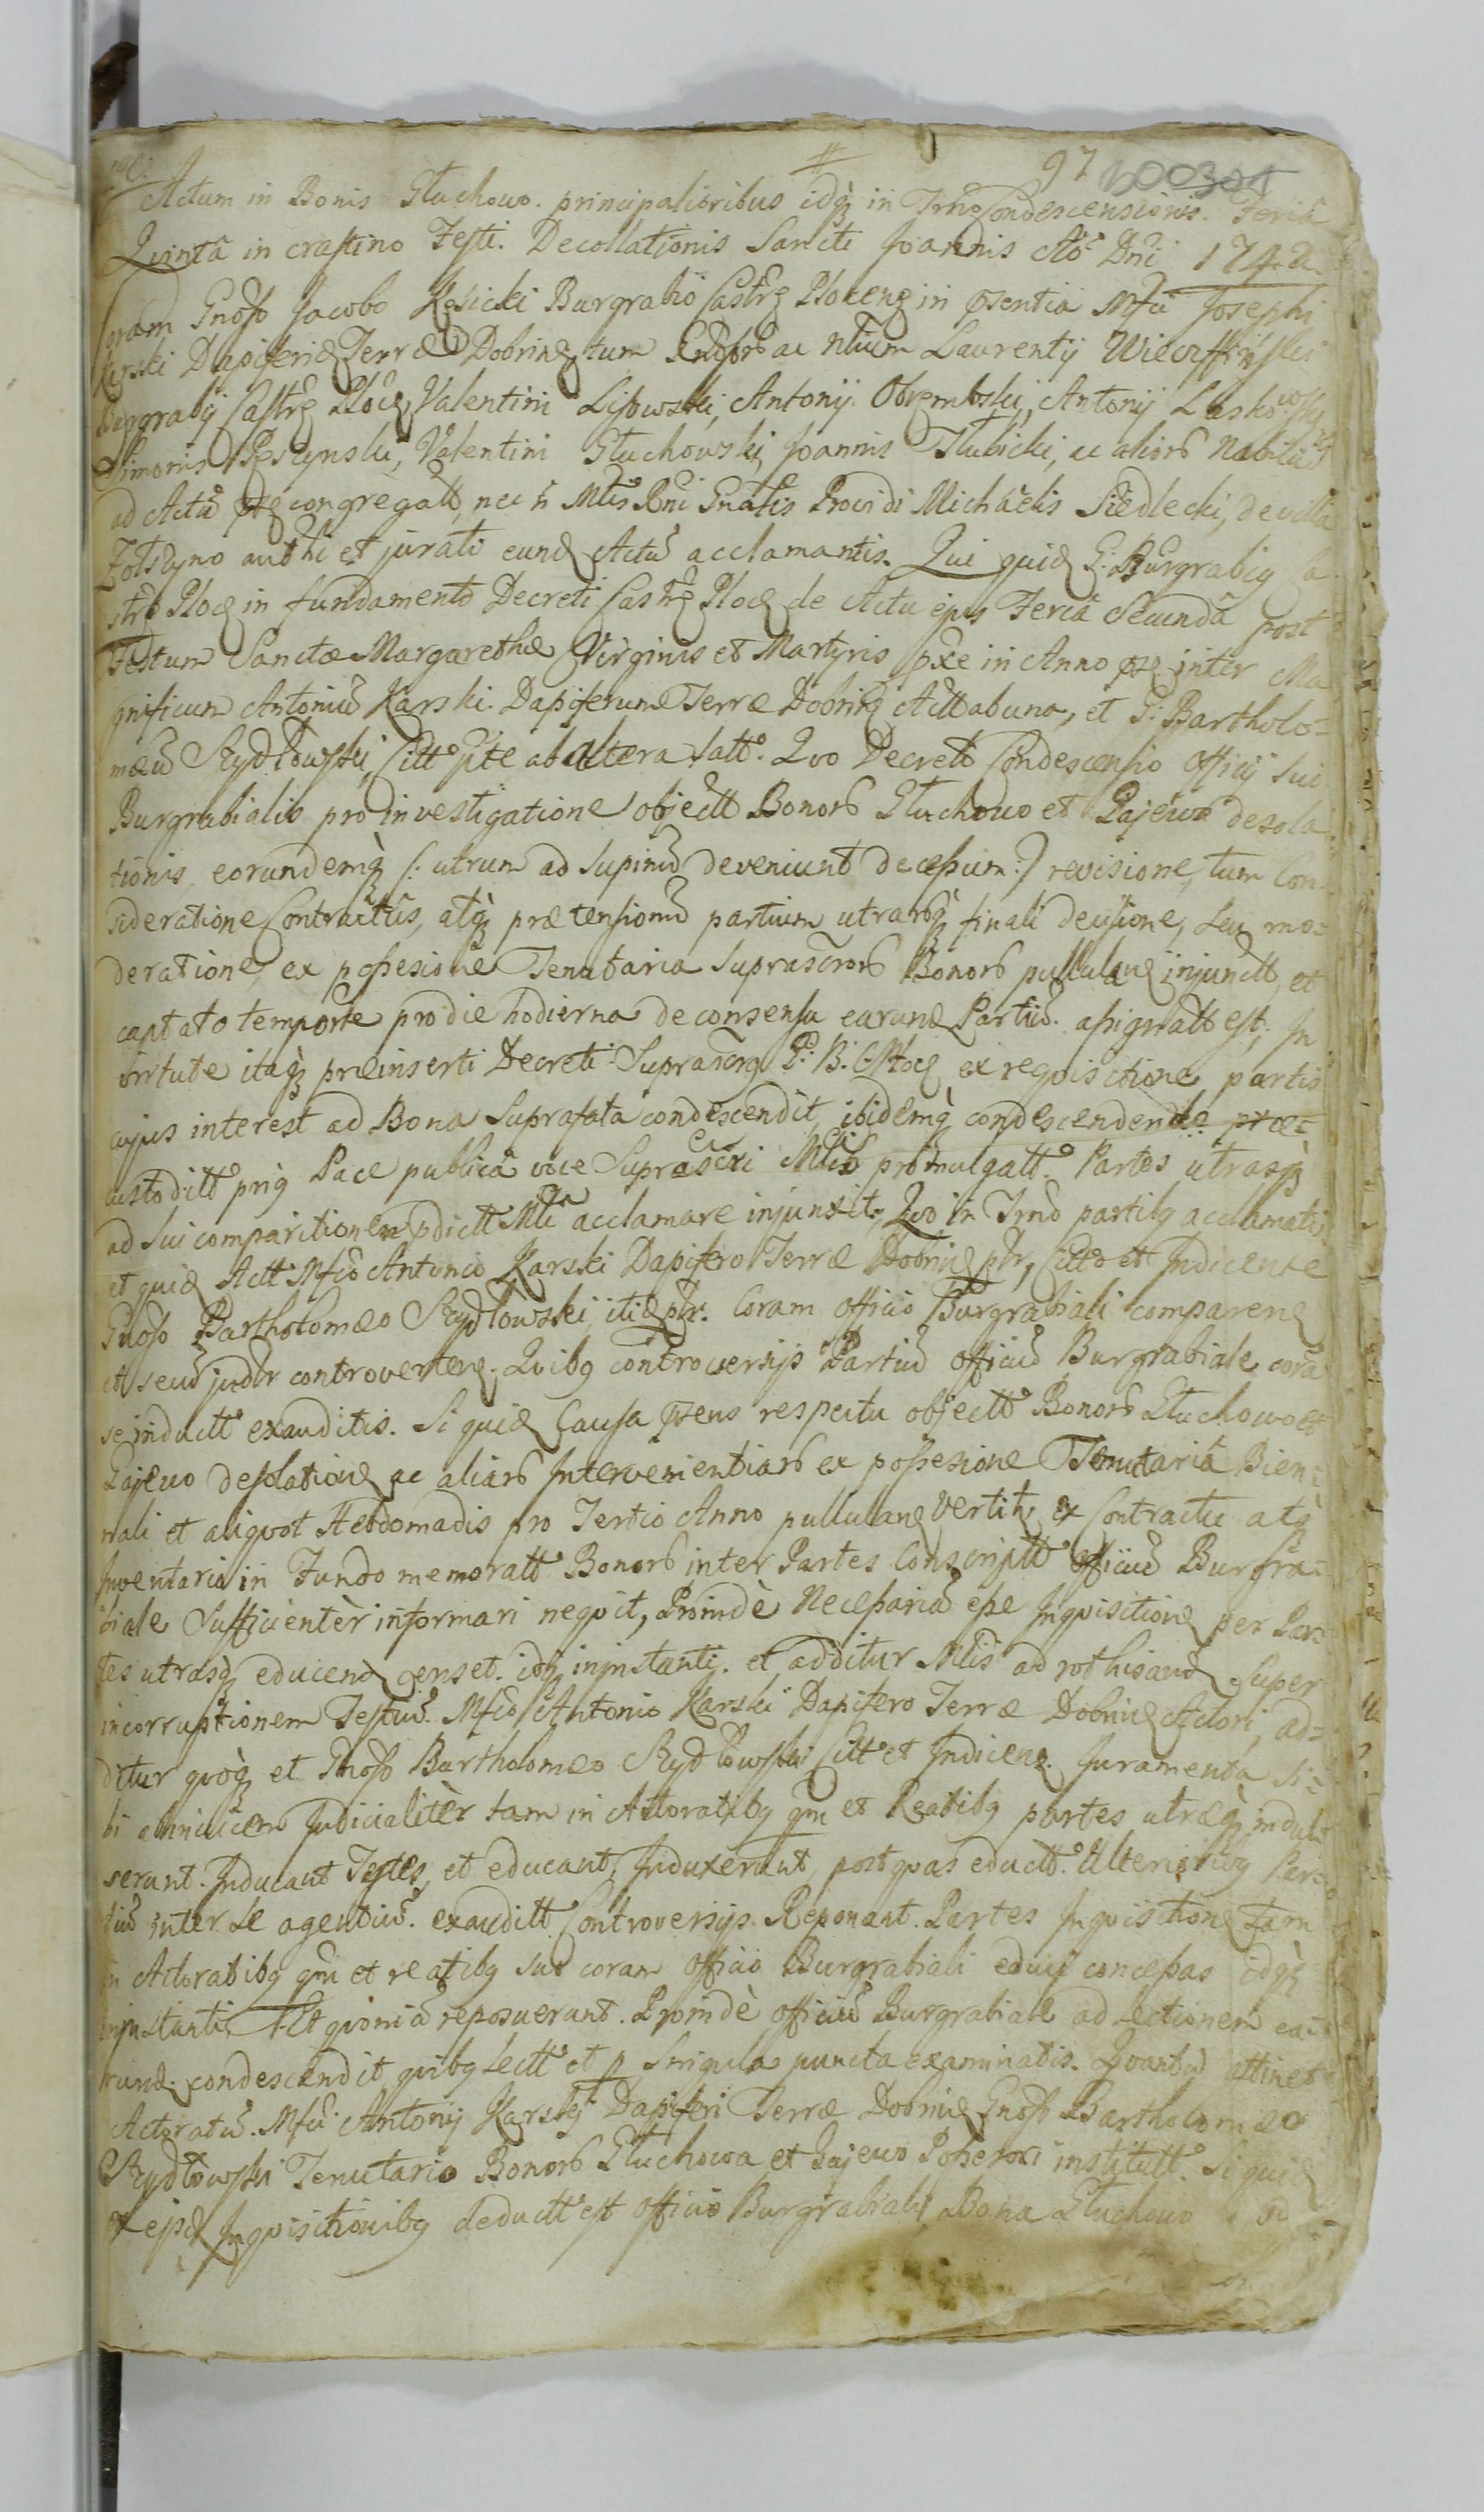 97
Actum in Bonis Głuchowo principalioribus idqz in Trno Condescensionis. Feria
Quinta in crastino Festi. Decollationis Sancti Joannis Ao Dni 1742.
Coram Gnoso Jacobo Kosicki Burgrabio Castrẽ Plocenẽ in pṡentia Mfci Josephi
Karski Dapiferidẽ Terræ Dobrinẽ tum Gndsorũ ac Nlium Laurentij
Burgrabij Castrẽ Plocẽ, Valentini Lisowski, Antonij Obrembski, Antonij Laskowski
Simonis Valentini Głuchowski, Joannis Tłubicki, ac aliorũ Nobiliũ
ad Actũ congregatt, nec ñ Mtis Rni Gnalis Providi Michaelis Siedlecki, de villa
authci et jurati eund Actũ acclamantis. Qui quid G: Burgrabig Ca
strẽ Plocẽ in fundamento Decreti Castrẽ Plocẽ de Actu ejus Feria Secunda post
Festum Sanctæ Margarethæ Virginis et Martyris pxe in Anno inter Ma
gnificum Antoniũ Karski. Dapiferum Terræ Dobrinẽ Actt ab una, et G: Bartholo=
mæũ Szydłowski, Citt pte ab altera latt. Quo Decreto Condescensio Officij sui
Burgrabialis pro investigatione objectt Bonorũ Głuchowo et Gajewo desola
tionis, eorundemqz (: utrum ad supinũ deveniunt decessum :) revisione, tum Con=
sideratione Contractus, atqz prætensionũ partium utrarũqz finali decisione, seu mo=
deratione, ex possesione Tenutaria suprascrorũ Bonorũ pullulanẽ injunctt, et
captato tempore pro die hodierna de consensu earund Partiũ. assignatt est, In
virtute itaqz præinserti Decreti Suprascrg G: B: C Plocẽ ex requisitione partis
cujus interest ad Bona suprafata condescendit, ibidemqz condescendendo præ=
custoditt prig Pace publica voce Suprascri Mlis promulgatt. Partes utrasqz
ad sui comparitionem pdictt Mli acclamare injunxit, Quo in Trno partibg acclamatis
et quid Actt Mfco Antonio Karski Dapifero Terræ Dobrinẽ ptr, Citto et Indicente
Gnoso Bartholomæo Szydłowski, itid ptr. Coram officio Burgrabiali comparenẽ
et seũ judtr controverten. Quibg controversijs Partiũ officiũ Burgrabiale cora
se inductt exauditis. Si quid Causa pṡens respectu objectt Bonorũ Głuchowo et
Gajewo desolatione ac aliarũ Intervenientiarũ ex possesione Tenutaria Bien=
nali et aliquot Hebdomadis pro Tertio Anno pullulanẽ vertitr, ex Contractu atqz
Inventario in Fundo memoratt Bonorũ inter Partes Conscriptt officiũ Burgra=
biale sufficientèr informari nequit, Proindè Necessariã esse Inquisitionẽ per Par=
tes utrasqz educend censet. idqz in instanti. et additur Mlis ad rothisand Super
incorruptionem Testiũ. Mfco Antonio Karski Dapifero Terræ Dobrinẽ Actori, ad=
ditur quoqz et Gnoso Bartholomæo Szydłowski Citt et Indicene. Juramenta si=
bi ad invicem Judicialitèr tam in Actoratibg qm et Reatibg partes utræqz indul
serunt. Inducant Testes, et educant, Induxerunt, post quas eductt. Ulterioribg Par=
tiũ inter se agentiũ. exauditt Controversijs. Reponant. Partes Inquisitione tam
in Actoratibg qm et reatibg suo coram officio Burgrabiali educi concessas idqz
in instanti. Et quoniã reposuerunt. Proindè officiũ Burgrabiale ad lectionem ea=
rund. condescendit, quibg lectt et p singula puncta examinatis. Quantũ attinet
Actoratũ. Mfci Antonij Karski Dapiferi Terræ Dobrinẽ Gnoso Bartholomæo
Szydłowski Tenutario Bonorũ Głuchowa et Gajewo Possessori institutt. Si quid
ex ejsd Inquisitionibg deductt est officio Burgrabiali, Bona Głuchowo